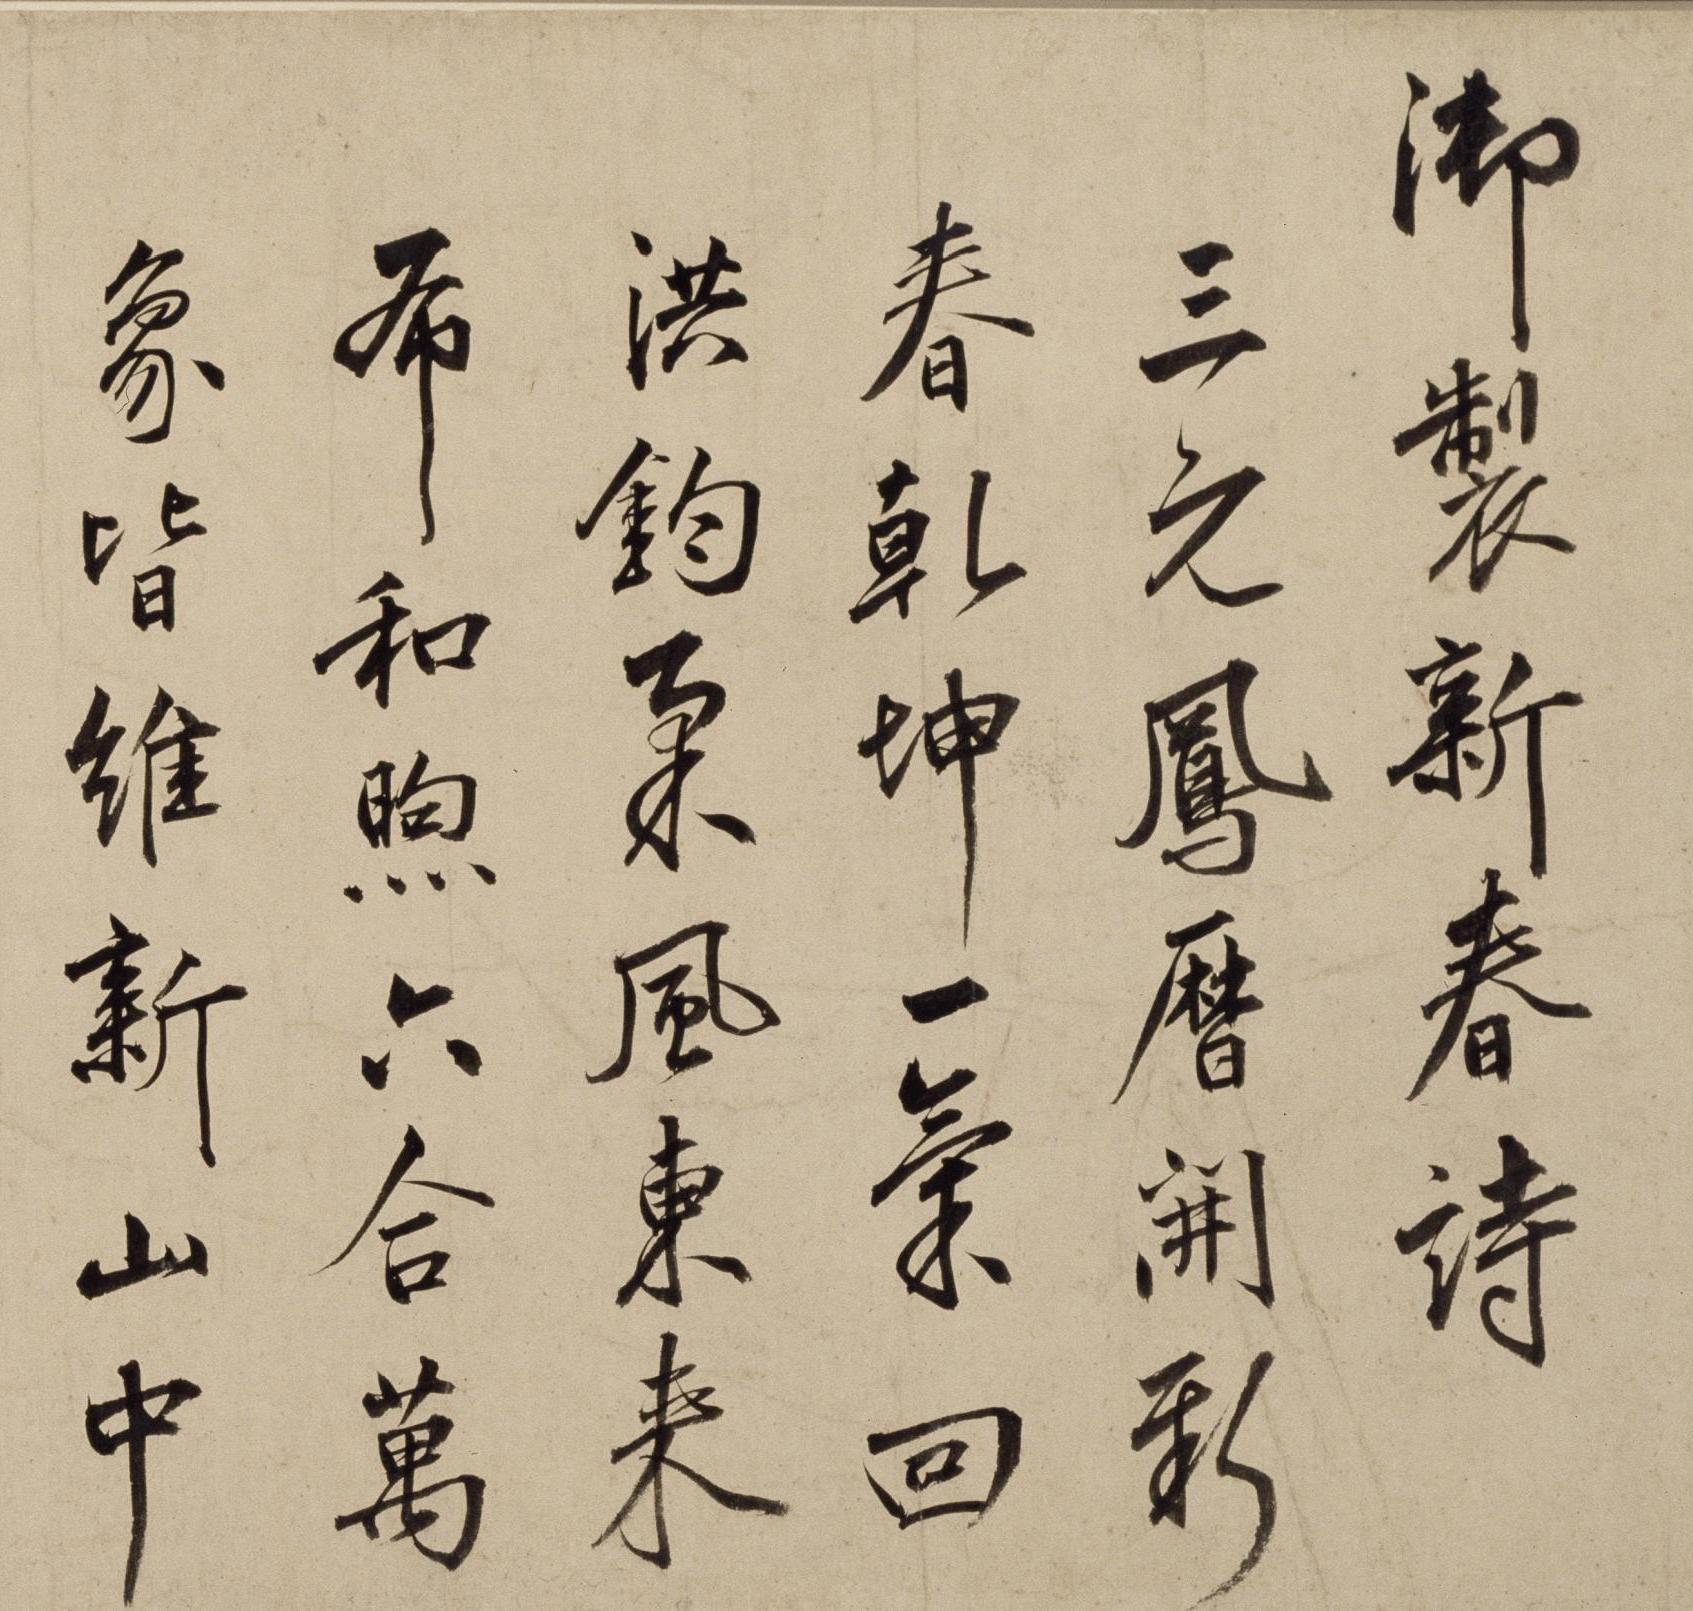 御製新春詩
三元鳳曆開新
春乾坤一氣回
洪鈞柔風東来
布和煦六合萬
象皆維新山中